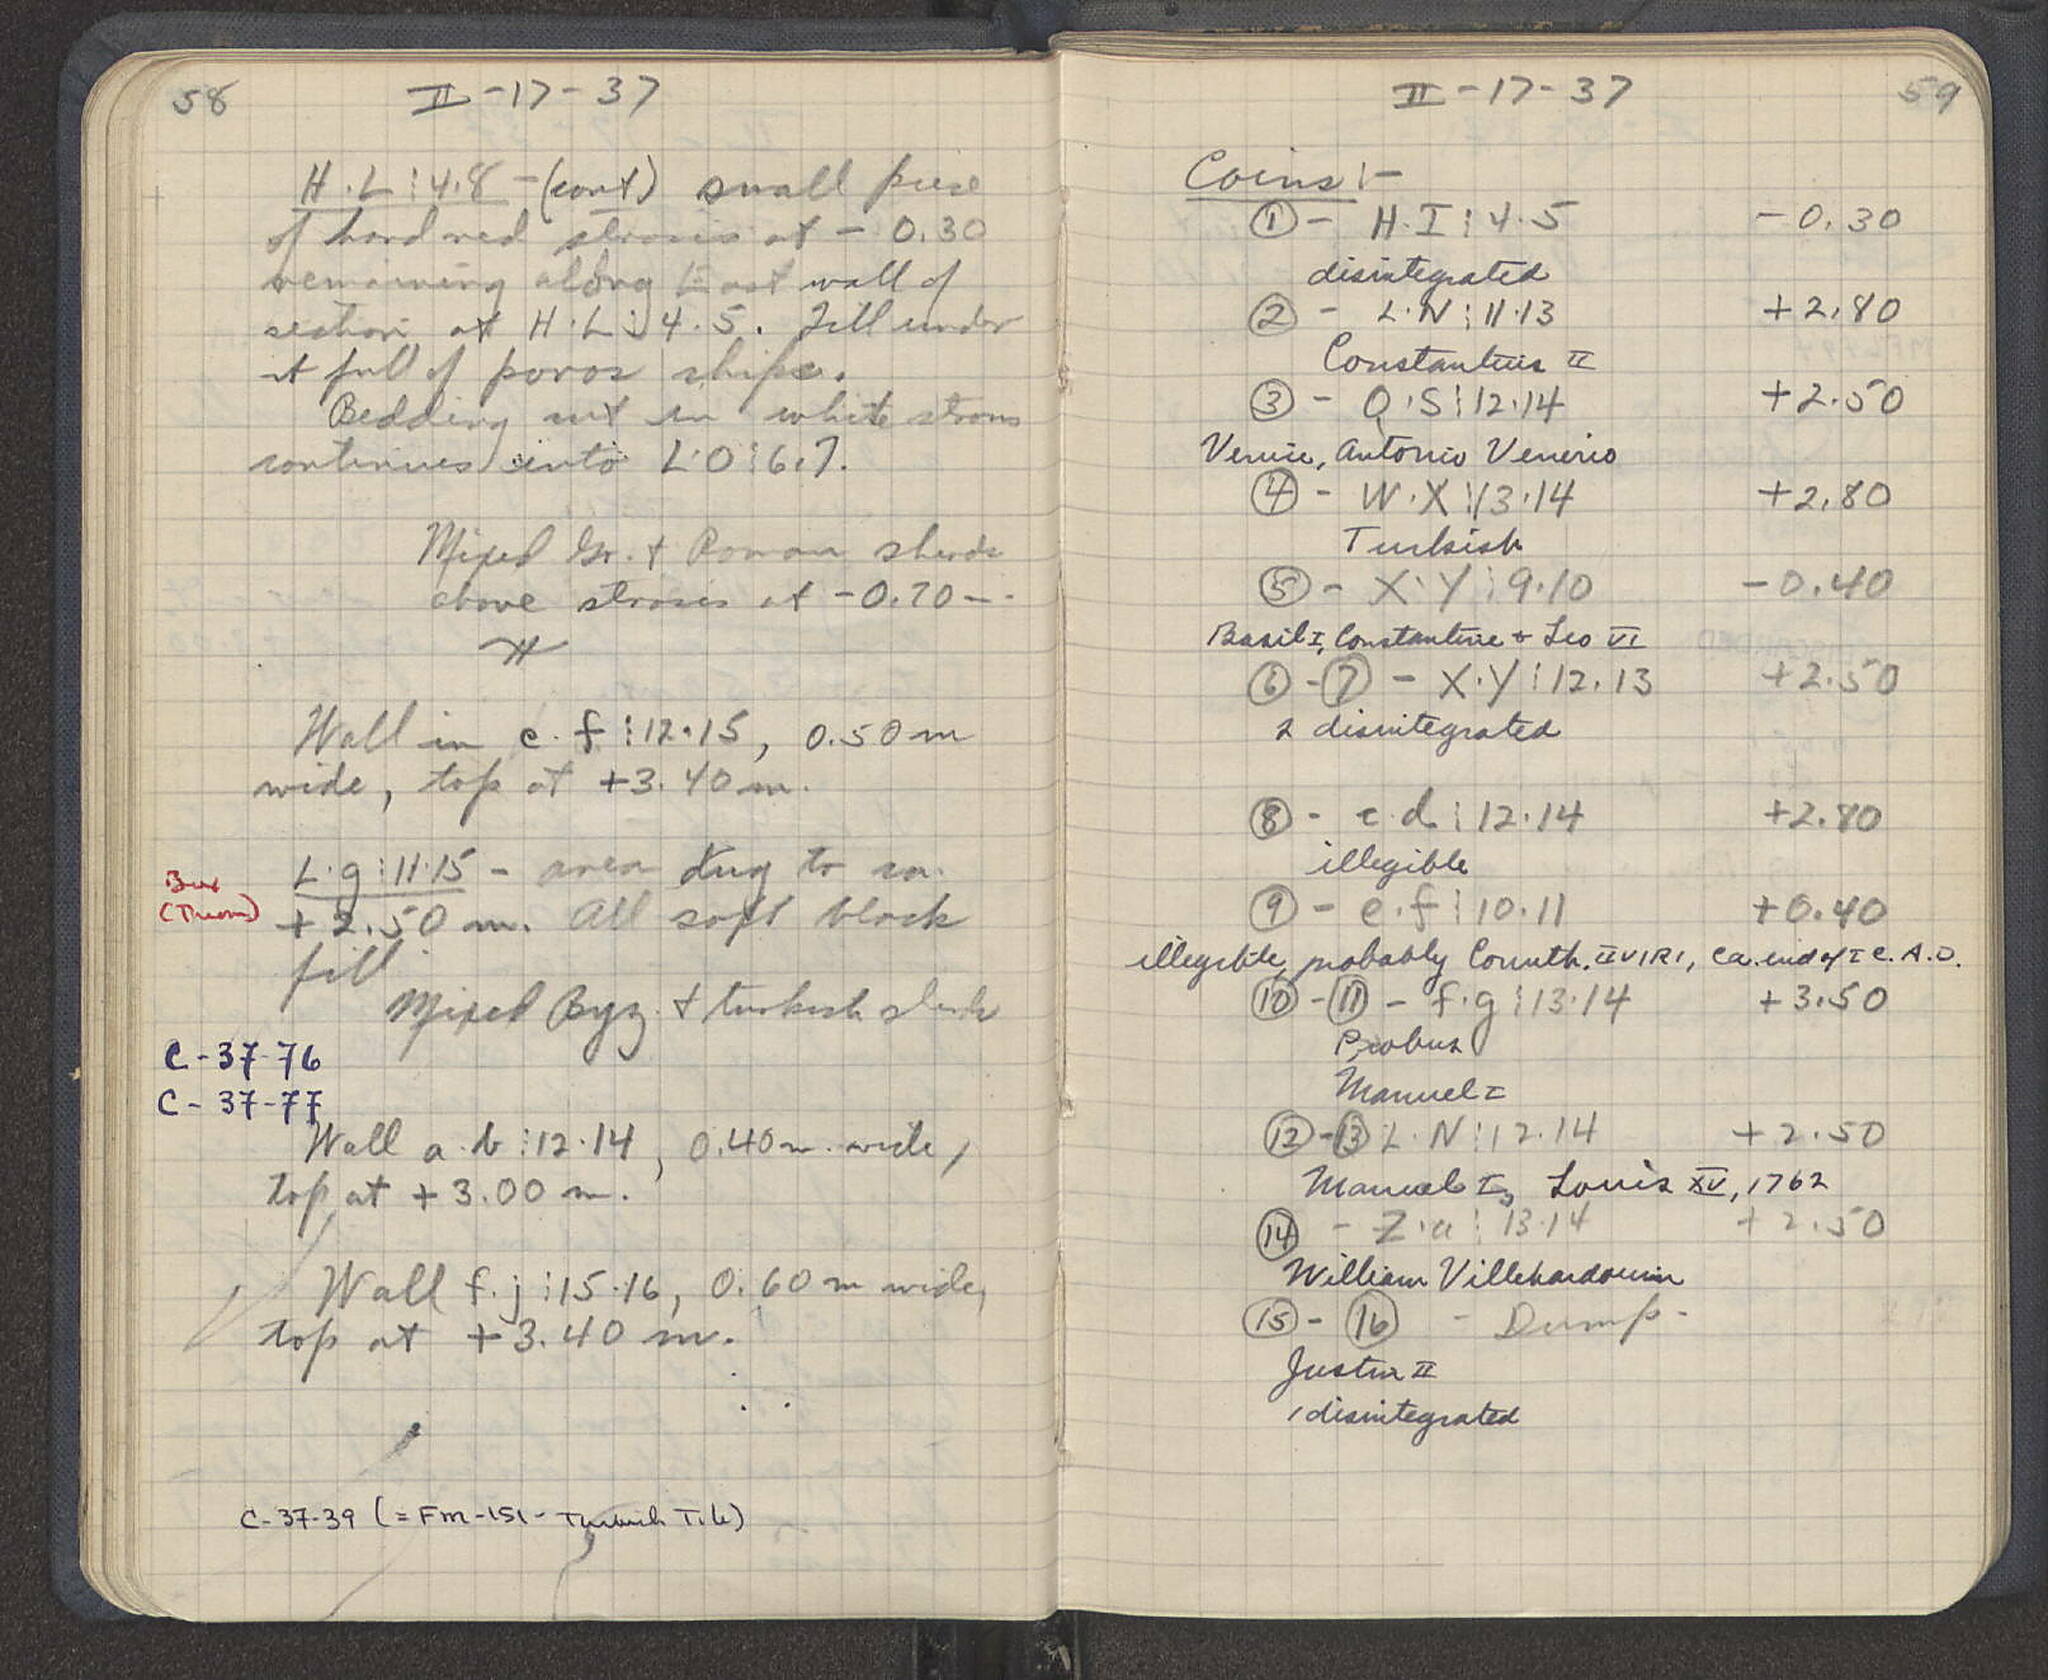 58
II - 17 - 37
H.L : 4.8 - (cont) small piece
of hard red stroses at - 0.30
remaining along East wall of
section at H.L : 4.5. Fill under
it full of poros chips.
Bedding cut in white stroses
continues into L.O : 6.7.
Mixed Gr. + Roman sherds
above stroses at - 0.70 -
Wall in e.f : 12.15, 0.50 m
wide, top at +3.40 m.
L.g : 11.15 - area dug to ca.
+ 2.50 m. All soft black
fill.
Mixed Byz. + turkish sherds
C - 37-76
C - 37-77
Wall a.b : 12.14, 0.40 m. wide,
top at + 3.00 m.
Wall f.j : 15.16, 0.60 m wide,
top at + 3.40 m.
C-37-39 (= Fm-151 - Turkish Tile)
II - 17 - 37
59
Coins :-
① - H.I : 4.5 - 0.30
disintegrated
② - L.N : 11.13 + 2.80
Constantius II
③ - Q.S : 12.14 +2.50
Venice, Antonio Venerio
④ - W.X : 13.14 +2.80
Turkish
⑤ - X.Y : 9.10 - 0.40
Basil I, Constantine + Leo VI
⑥ - ⑦ - X.Y : 12.13 +2.50
2 disintegrated
⑧ - c.d : 12.14 +2.80
illegible
⑨ - e.f : 10.11 +0.40
illegible, probably Corinth. IIVIRI, ca. end of I C. A.D.
⑩ - ⑪ - f.g : 13.14 + 3.50
Probus
Manuel I
⑫ - ⑬ L.N : 12.14 + 2.50
Manuel I, Louis XV, 1762
⑭ - Z.a : 13.14 + 2.50
William Villehardouin
⑮ - ⑯ - Dump -
Justin II
1 disintegrated